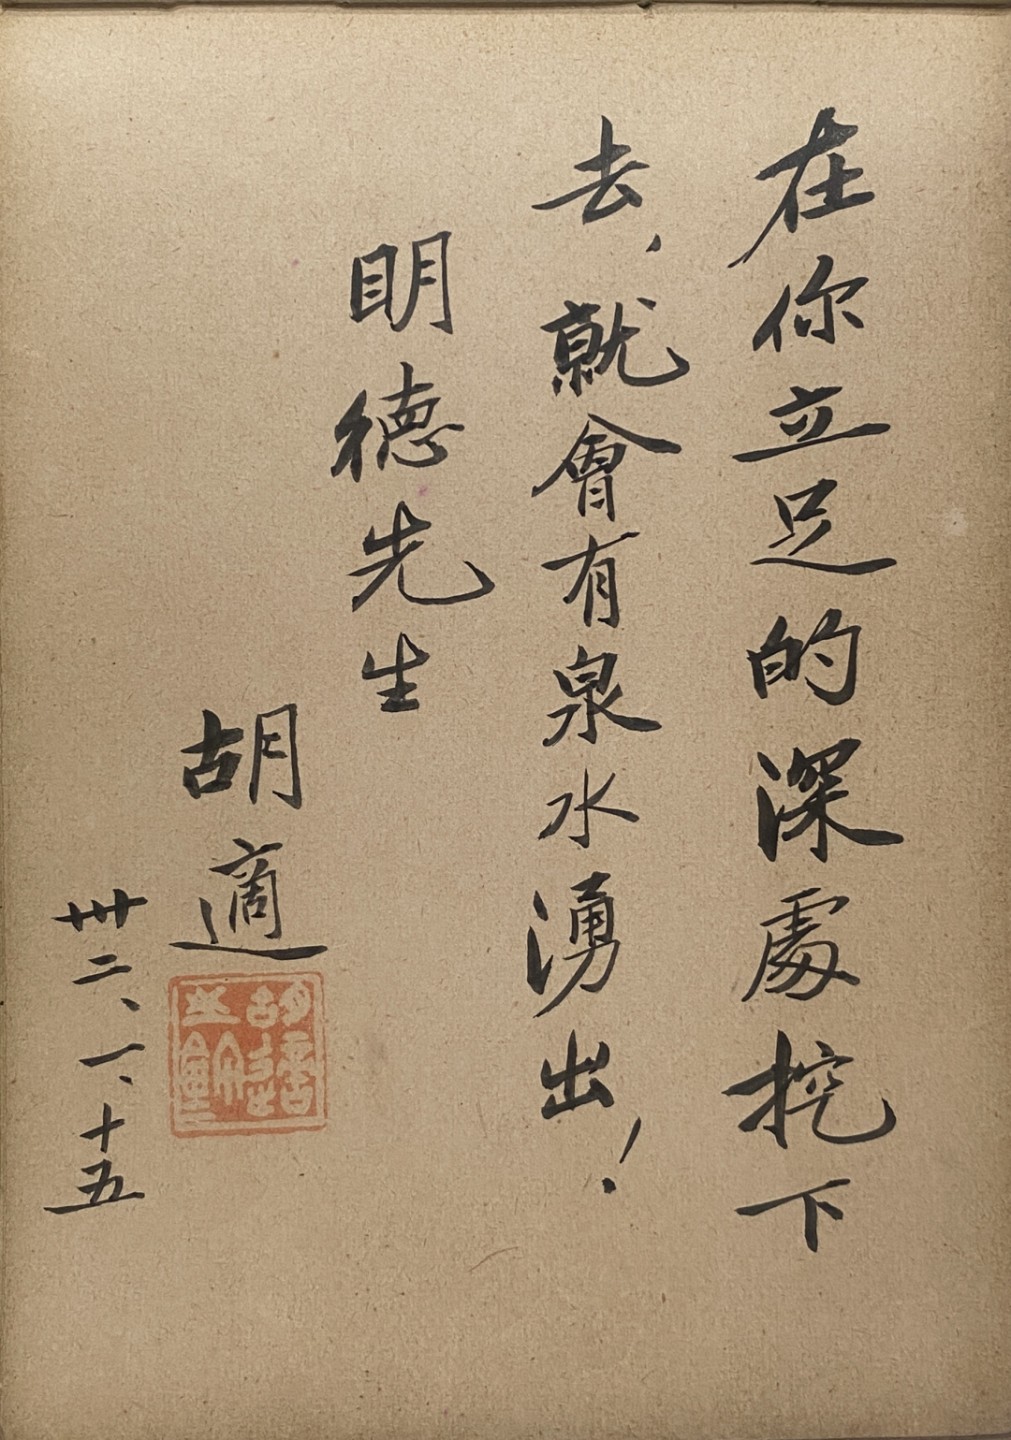 在你立足的深處挖下
去，就會有泉水湧出！
明德先生
胡適
卅二、一、十五